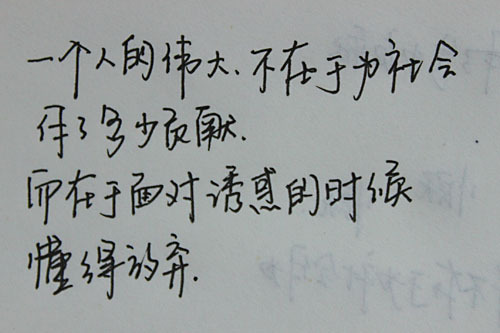 一个人的伟大、不在于为社会
作了多少贡献.
而在于面对诱惑的时候
懂得放弃.